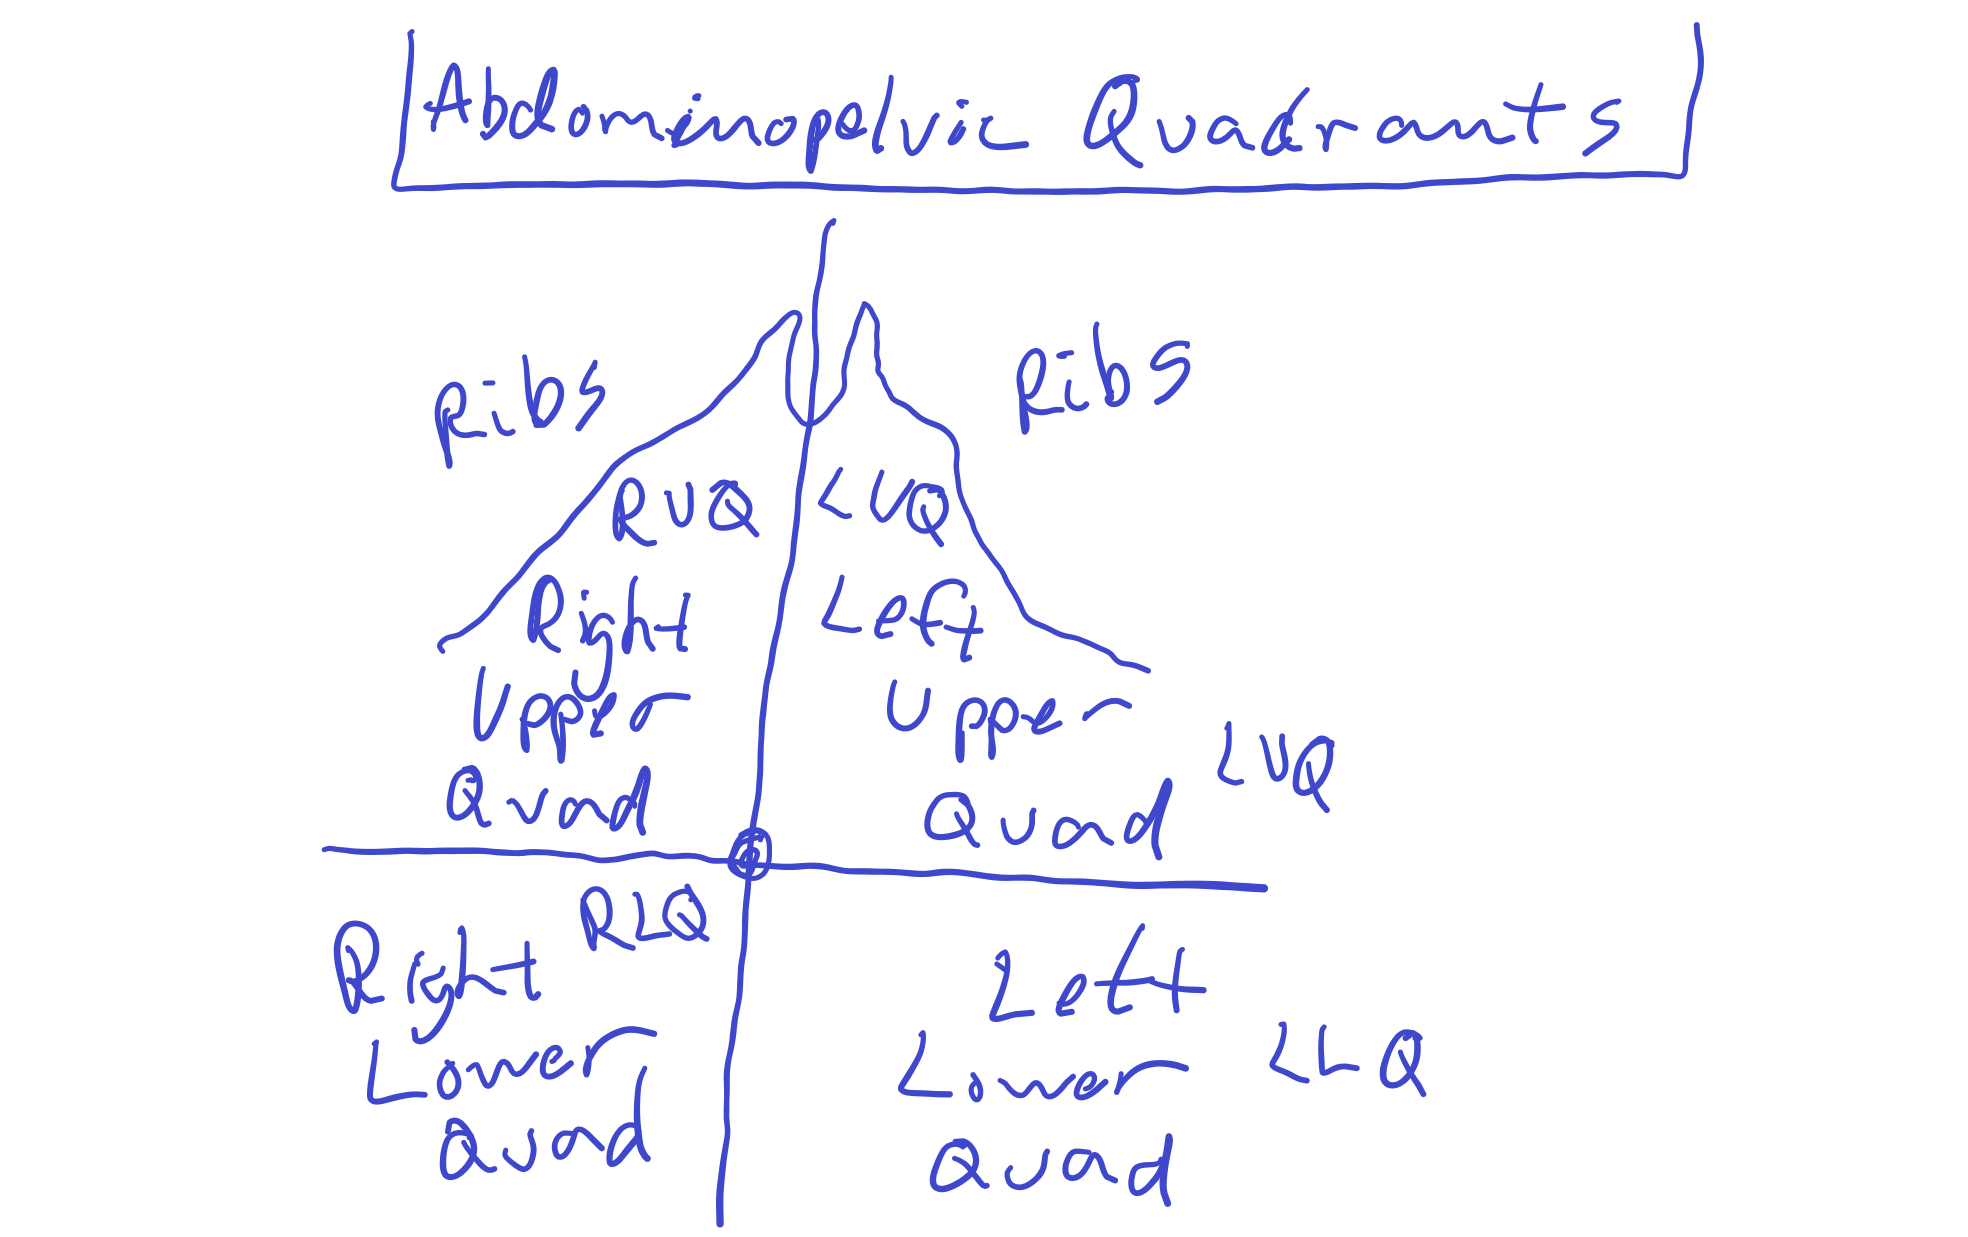 Abdominopelvic Quadrants
Ribs
Ribs
RUQ
LUQ
Right
Upper
Quad
Left
Upper
Quad
LUQ
RLQ
Right
Lower
Quad
Left
Lower
Quad
LLQ